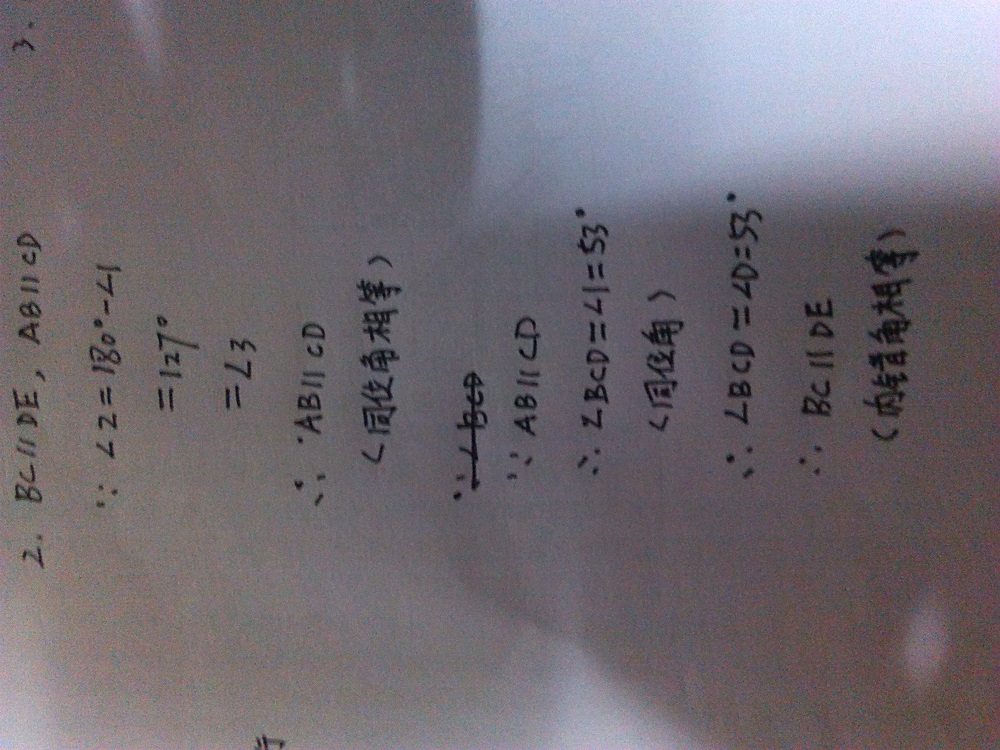 2. BC∥DE, AB∥CD
∵ ∠2=180°-∠1
=127°
=∠3
∴ AB∥CD
(同位角相等)
∵ ∠BCD
∵ AB∥CD
∴ ∠BCD=∠1=53°
(同位角)
∴ ∠BCD=∠D=53°
∴ BC∥DE
(内错角相等)
3.